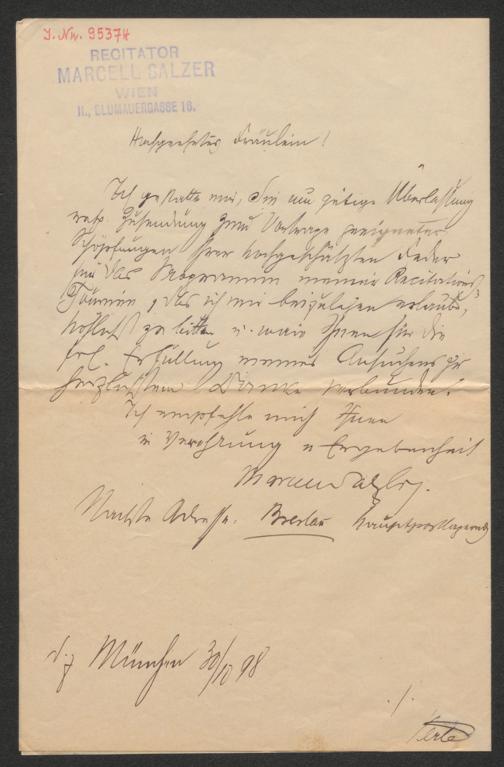 J. Nr. 95374
RECITATOR
MARCELL SALZER
WIEN
II., BLUMAUERGASSE 16.
Hochgeehrtes Fräulein!
Ich gestatte mir, Sie um gütige Überlassung
resp. Zusendung zum Vortrage geeigneter
Schöpfungen Ihrer hochgeschätzten Feder
für das Programm meiner Recitations-
Tournée, das ich mir beizulegen erlaube,
höflichst zu bitten u. wäre Ihnen für die
frl. Erfüllung meines Ansuchens zu
herzlichstem Danke verbunden.
Ich empfehle mich Ihnen
in Verehrung u Ergebenheit
Marcell Salzer.
Nächste Adresse. Breslau hauptpostlagernd
München 30/10 98
./.